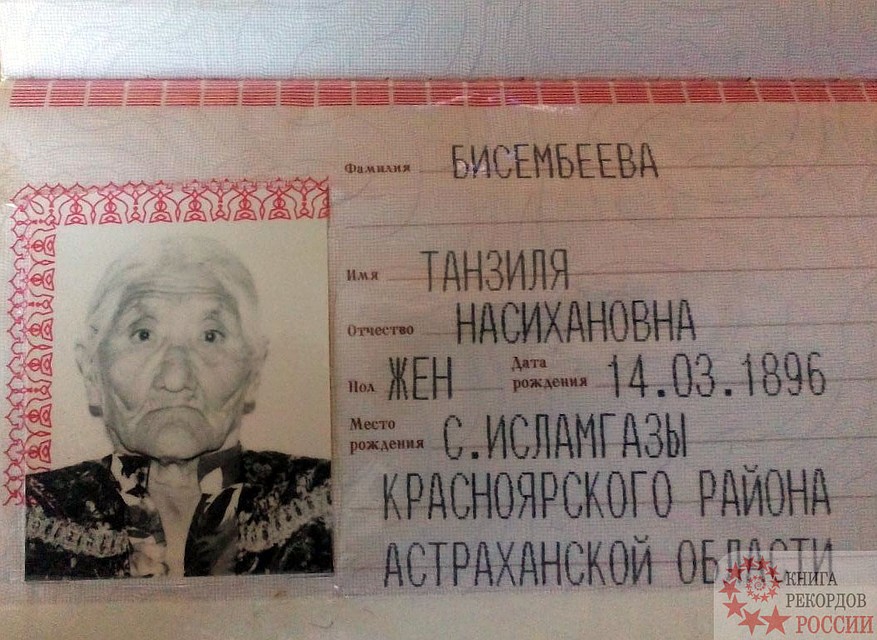 Фамилия БИСЕМБЕЕВА
Имя ТАНЗИЛЯ
Отчество НАСИХАНОВНА
Пол ЖЕН Дата рождения 14.03.1896
Место рождения С.ИСЛАМГАЗЫ
КРАСНОЯРСКОГО РАЙОНА
АСТРАХАНСКОЙ ОБЛАСТИ
КНИГА
РЕКОРДОВ
РОССИИ